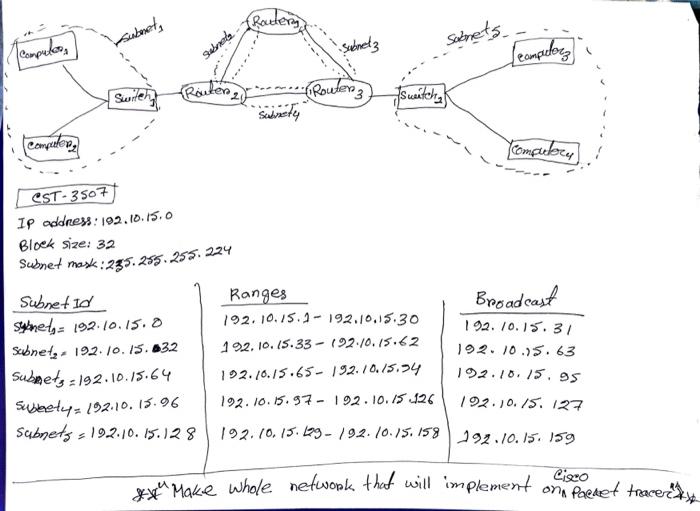 Subnet1
Router1
Subnet2
Subnet3
Subnet5
Computer1
Computer3
Switch1
Router2
Router3
Switch2
Subnet4
Computer2
Computer4
CST-3507
IP address: 192.10.15.0
Block size: 32
Subnet mask: 255.255.255.224
Subnet Id
Ranges
Broadcast
Subnet1 = 192.10.15.0
192.10.15.1 - 192.10.15.30
192.10.15.31
Subnet2 = 192.10.15.32
192.10.15.33 - 192.10.15.62
192.10.15.63
Subnet3 = 192.10.15.64
192.10.15.65 - 192.10.15.94
192.10.15.95
Subnet4 = 192.10.15.96
192.10.15.97 - 192.10.15.126
192.10.15.127
Subnet5 = 192.10.15.128
192.10.15.129 - 192.10.15.158
192.10.15.159
** "Make whole network that will implement on Cisco Packet tracer" **